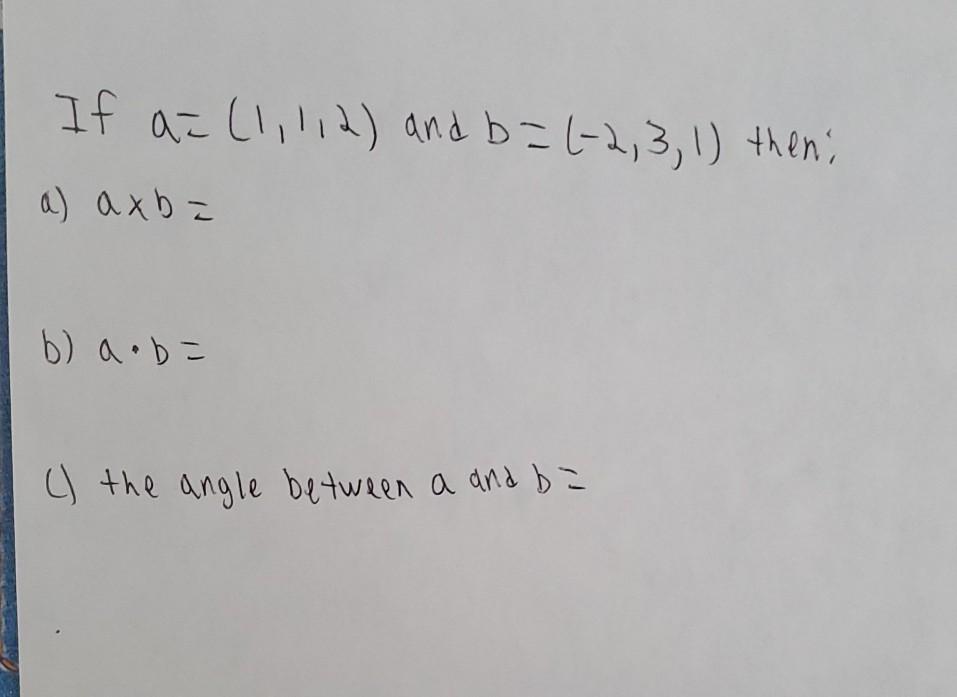 If a = (1,1,2) and b = (-2,3,1) then:
a) a x b =
b) a · b =
c) the angle between a and b =